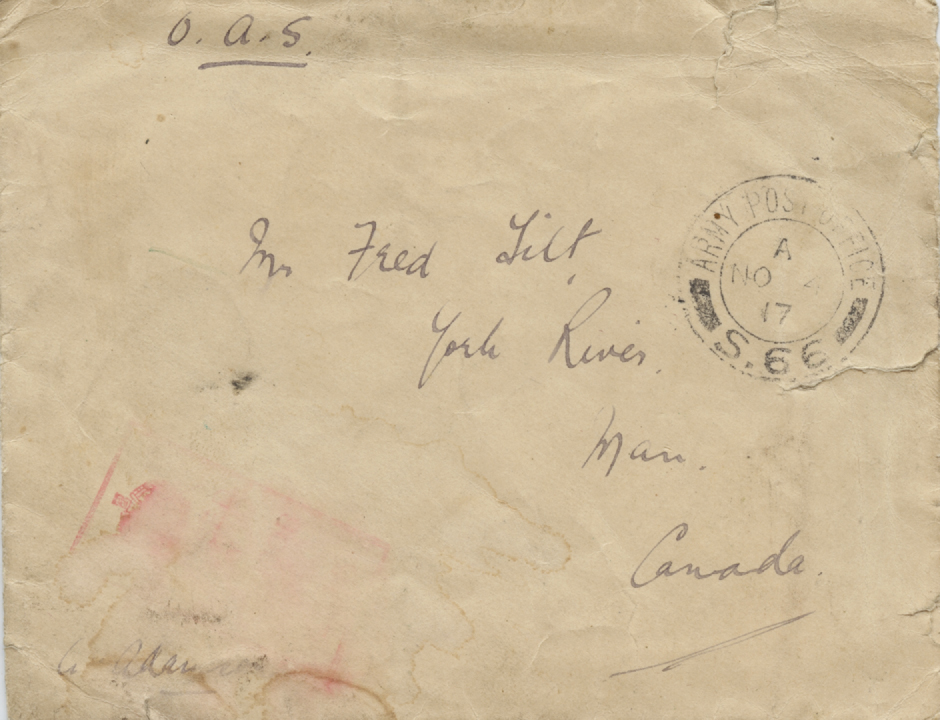 O. A. S.
Mr Fred Tilt,
York River,
Man.
Canada.
ARMY POST OFFICE
A
NO 4
17
S.66